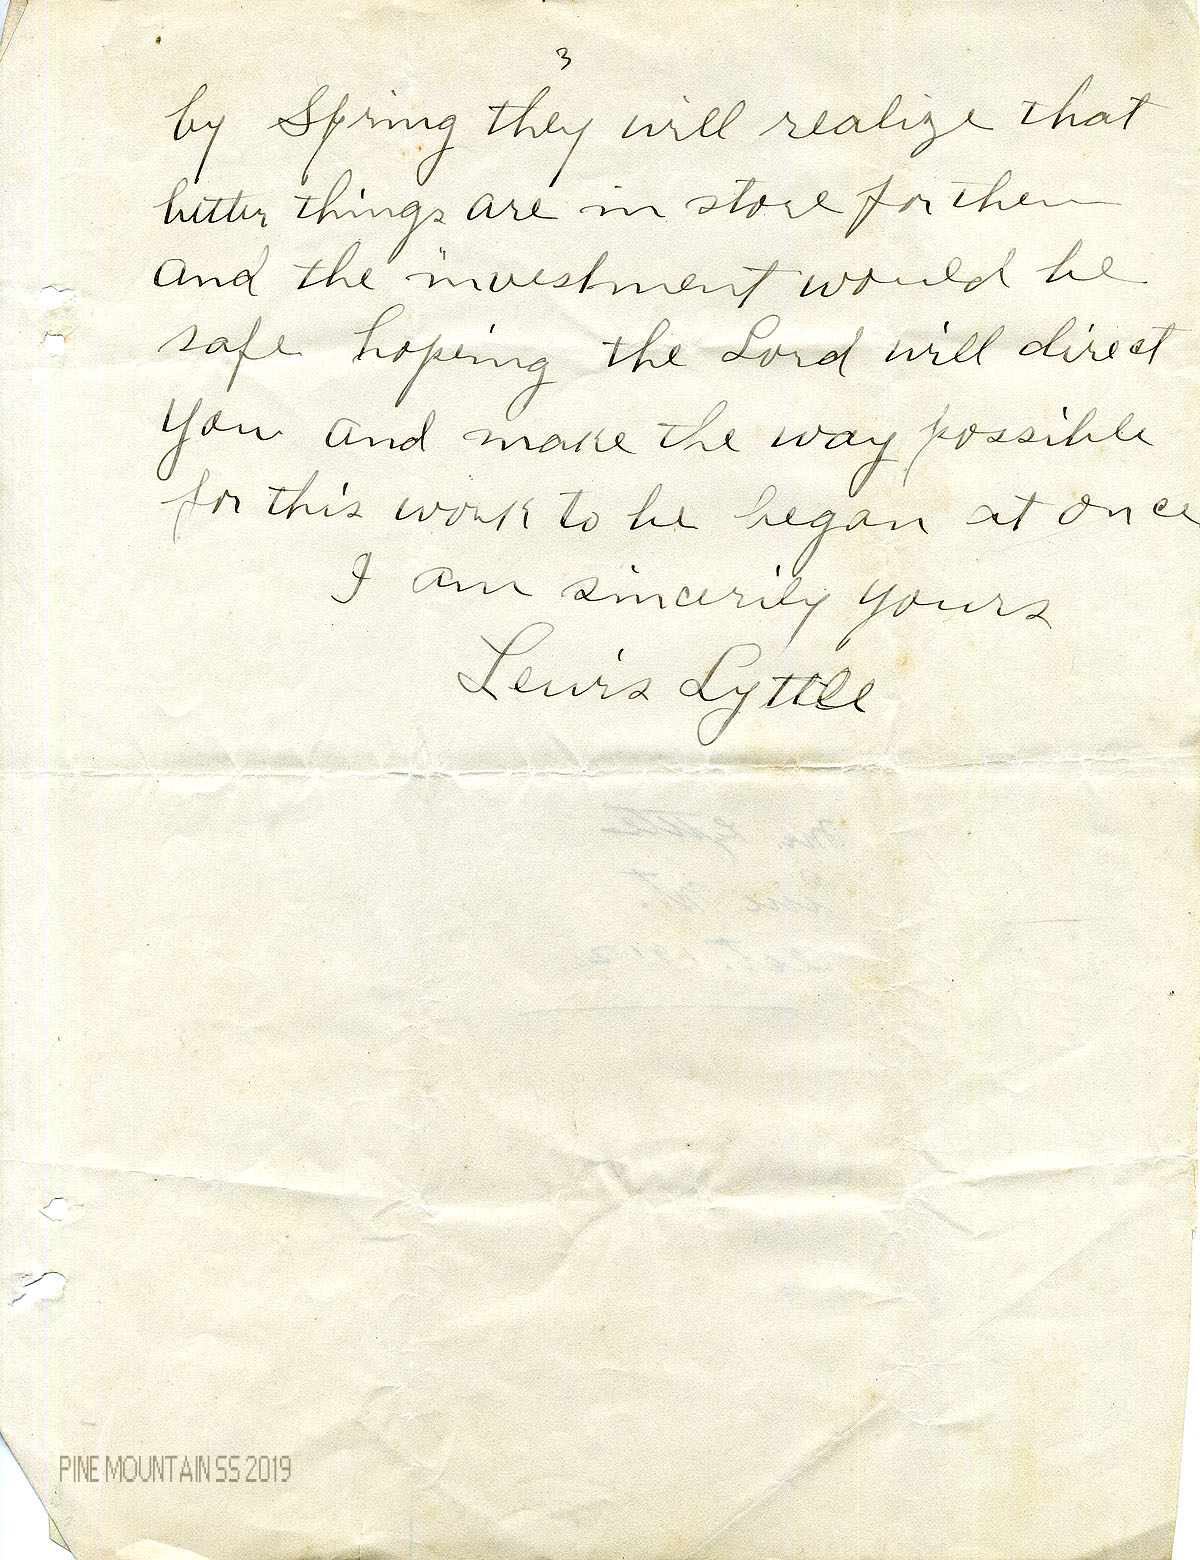 3
by Spring they will realize that
better things are in store for them
and the investment would be
safe hoping the Lord will direct
you and make the way possible
for this work to be began at once
I am sincerily yours
Lewis Lyttle
Mr. Lyttle
Pine Mt.
1912
PINE MOUNTAIN SS 2019